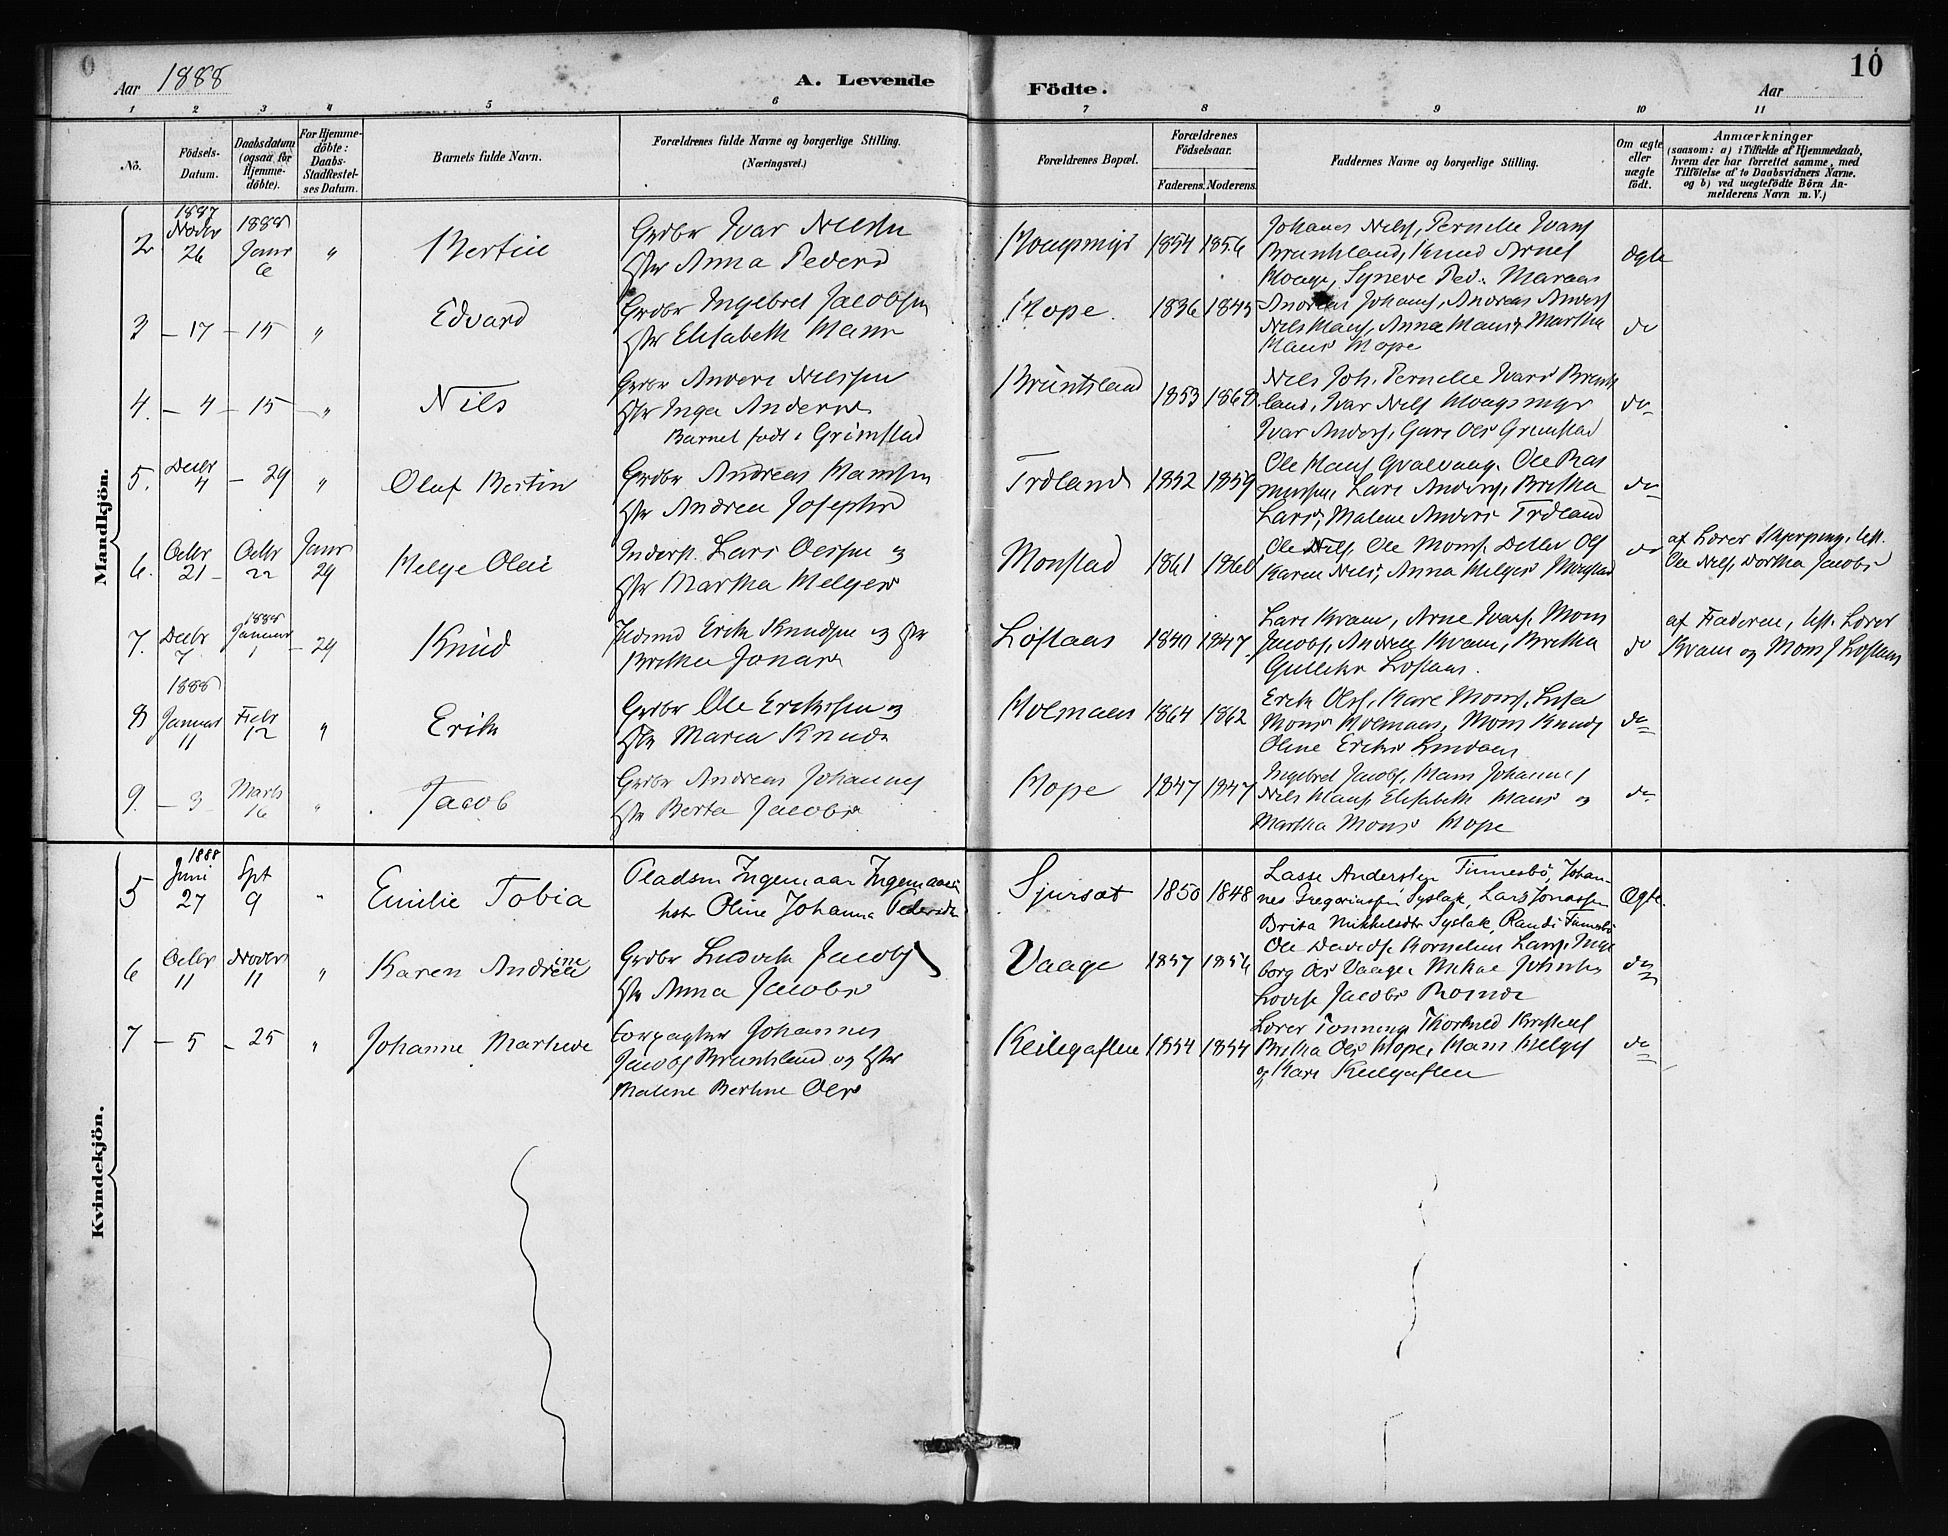 Aar 1888
A. Levende
Födte.
Aar
10
1 2 3 4 5 6 7 8 9 10 11
No.
Födsels-
Datum.
Daabsdatum
(ogsaa for
Hjemme-
döbte).
For Hjemme-
döbte:
Daabs-
Stadfæstel-
ses Datum.
Barnets fulde Navn.
Forældrenes fulde Navne og borgerlige Stilling.
(Næringsvei.)
Forældrenes Bopæl.
Forældrenes
Födselsaar.
Faderens. Moderens.
Faddernes Navne og borgerlige Stilling.
Om ægte
eller
uægte
födt.
Anmærkninger
(saasom: a) i Tilfælde af Hjemmedaab,
hvem der har forrettet samme, med
Tilföielse af to Daabsvidners Navne.
og b) ved uægtefödte Börn An-
melderens Navn m. V.)
Mandkjön.
2 1887 Novbr 26 1888 Janr 6 " Bertin
Grdbr Ivar Nilssen
Hstr Anna Peders
1854 1856
Johanes Nels, Pernille Ivars
Bruntsland, Knud Arnes
Syneve Ped.
Ægte
3 – 17 – 15 " Edvard
Grdbr Ingebret Jacobsen
Hstr Elisabeth Hans
Hope. 1836 1845
Andreas Johans, Andreas Anders
Nels Hans, Anna Hans, Martha
Hans Hope
do
4. – 4 – 15 – " Nils
Grdbr Anders Nelssen
Hstr Inga Anders
Barnet født i Grimstad
Bruntsland 1853 1868
Nels Joh. Pernille Ivars Brunts
land, Ivar Nels
Ivar Anders, Guri Ols Grimstad
do
5. Decbr 4 – 29 " Oluf Bertin
Grdbr Andreas Hanssen
Hstr Andrea Josephs
Trdland 1852 1859
Ole Hans Ole Ras
mussen, Lars Anders, Britha
Lars, Malene Anders Trdland
do
6. Octbr 21 – Octbr 22 Janr 29 Helge Olai
Inderst. Lars Olssen og
Hstr Martha Helges
Monstad 1861 1860
Ole Nels, Ole Mons, Detlev Ols
Karen Nels, Anna Helges Monstad
do
af Lærer
Ole Nels, Dorthea Jacobs
7. Decbr 7 1888 Januar 1 – 29 Knud
Erik Knudsen og Hstr
Britha Jonas
Løftaas 1840 1847
Lars Kvam, Arne Ivars, Mons
Jacobs, Andrea Kvam, Britha
Løftaas.
do
af Faderen, Lærer
Kvam og Mons J Løftaas
8 1888 Januar 11 Febr 12 " Erik
Grdbr Ole Erikssen og
Hstr Maria Knuds
Holmaas 1864 1862
Erik Ols, Kari Mons, Lisa
Mons Holmaas, Mons Knuds
Oline Eriks Lindaas
do
9. – 3 Marts 16 " Jacob
Grdbr Andreas Johannes
Hstr Berta Jacobs
Hope 1847 1847
Ingebret Jacobs, Hans Johannes
Nils Hans Elisabeth Hans og
Martha Mons Hope
do
Kvindekjön.
5 1888 Juni 27 Spt 9 " Emilie Tobia
Pladsm Ingemaar Ingemaars
hstr Oline Johanna Pedersdtr
Sjursæt 1850 1848
Lasse Anderssen Tinnesbø, Johan-
nes Gregoriussen Syslak, Lars Jonassen
Brita Mikkelsdtr Syslak, Randi Tinnesbø
Ægte.
6 Octbr 11 Novbr 11 " Karen Andrine
Grdbr Ludvik Jacobs
Hstr Anna Jacobs
Vaage 1857 1856
Ole Davids, Kornelius Lars, Inge
borg Ols Vaage, Mikal Johs
Lovise Jacobs
do
7 – 5 – 25 " Johanne Marthine
Forpagter Johannes
Jacobs Bruntsland og Hstr
Malene Bertine Ols
Keilegaflen 1854 1854
Lærer Tonning, Thorkild
Britha Ols Hope, Hans Helges
og Kari Keilegaflen
do